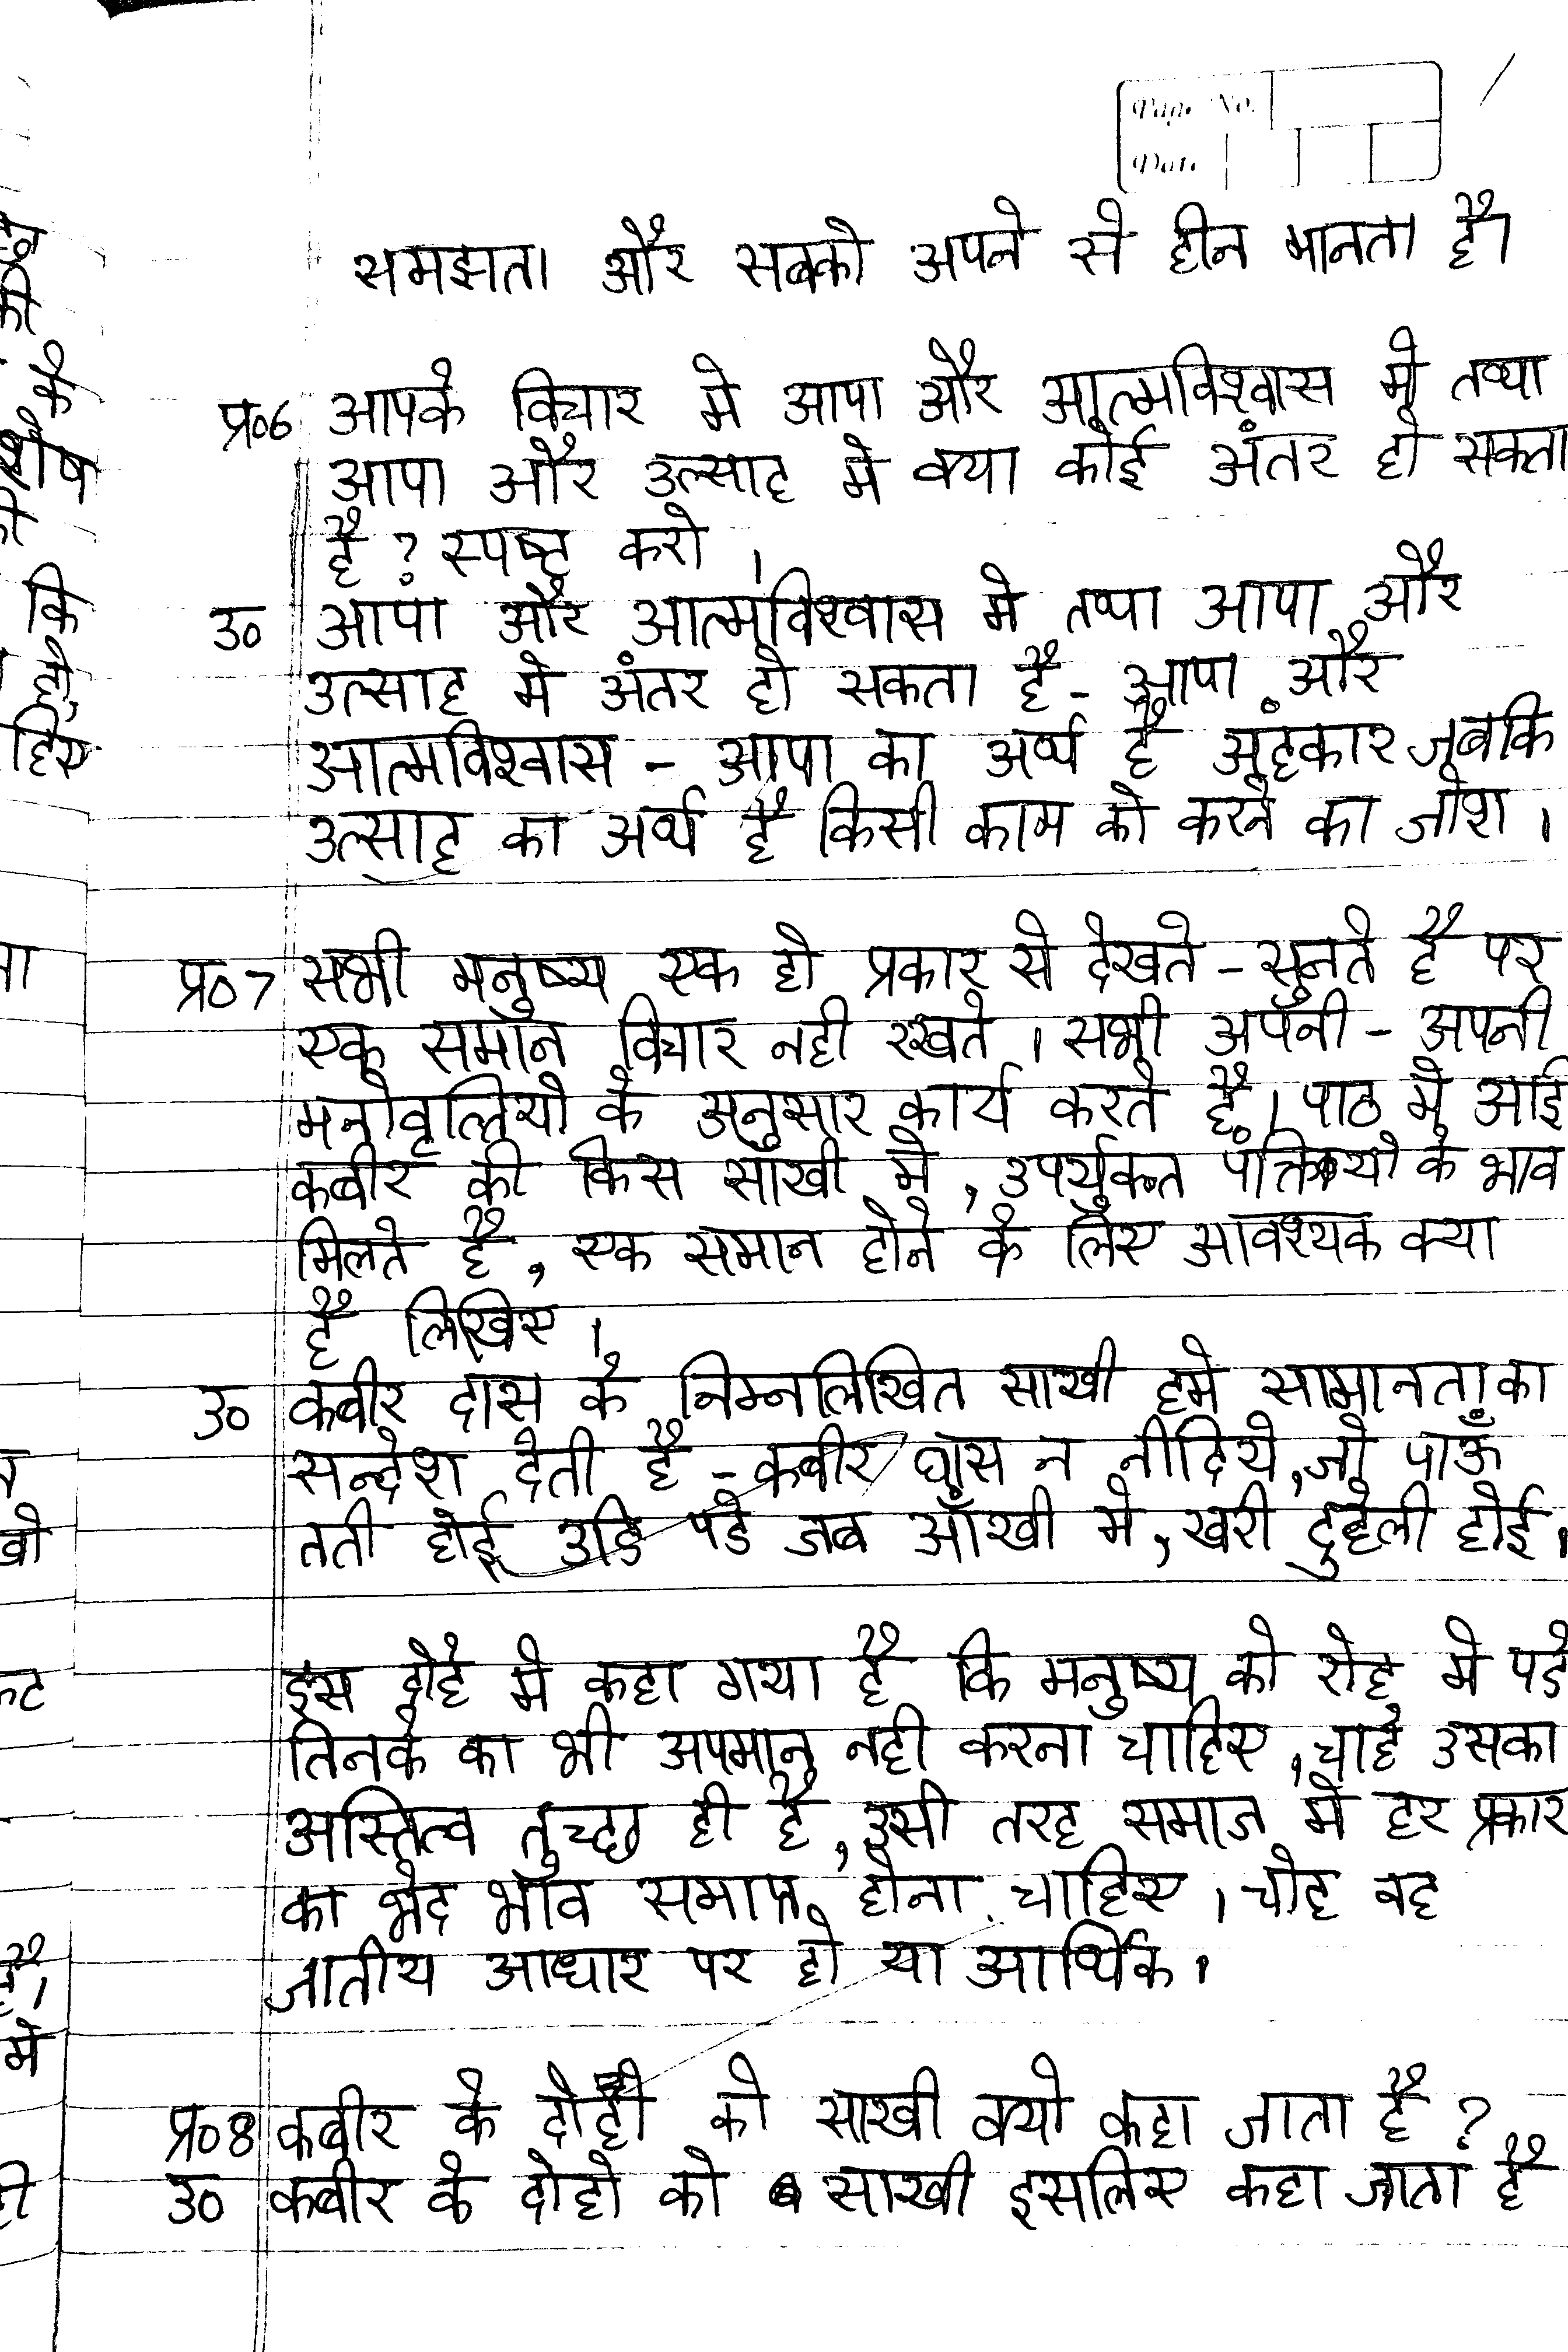 Page No.
Date
समझता और सबको अपने से हीन मानता है।
प्र०6 आपके विचार मे आपा और आत्मविश्वास मे तथा
आपा और उत्साह मे क्या कोई अंतर हो सकता
है ? स्पष्ट करो ।
उ० आपा और आत्मविश्वास मे तथा आपा और
उत्साह मे अंतर हो सकता है - आपा और
आत्मविश्वास - आपा का अर्थ है अंहकार जबकि
उत्साह का अर्थ है किसी काम को करने का जोश ।
प्र०7 सभी मनुष्य एक ही प्रकार से देखते - सुनते है पर
एक समान विचार नही रखते । सभी अपनी - अपनी
मनोवृत्तियो के अनुसार कार्य करते है। पाठ मे आई
कबीर की किस साखी मे , उपर्युक्त पंक्तियो के भाव
मिलते है , एक समान होने के लिए आवश्यक क्या
है लिखिए ।
उ० कबीर दास के निम्नलिखित साखी हमे सामानता का
सन्देश देती है - कबीर घास न नीदिये, जो पाऊँ
तती होई उडि पडे जब आँखी मे, खरी दुहेली होई।
इस दोहे मे कहा गया है कि मनुष्य को रोह मे पडे
तिनके का भी अपमान नही करना चाहिए , चाहे उसका
अस्तित्व तुच्छ ही है , उसी तरह समाज मे हर प्रकार
का भेद भाव समाप्त होना चाहिए । चोह वह
जातीय आधार पर हो या आर्थिक ।
प्र०8 कबीर के दोहो को साखी क्यो कहा जाता है ?
उ० कबीर के दोहो को साखी इसलिए कहा जाता है
के
शेष
कि
हो,
हिए
में